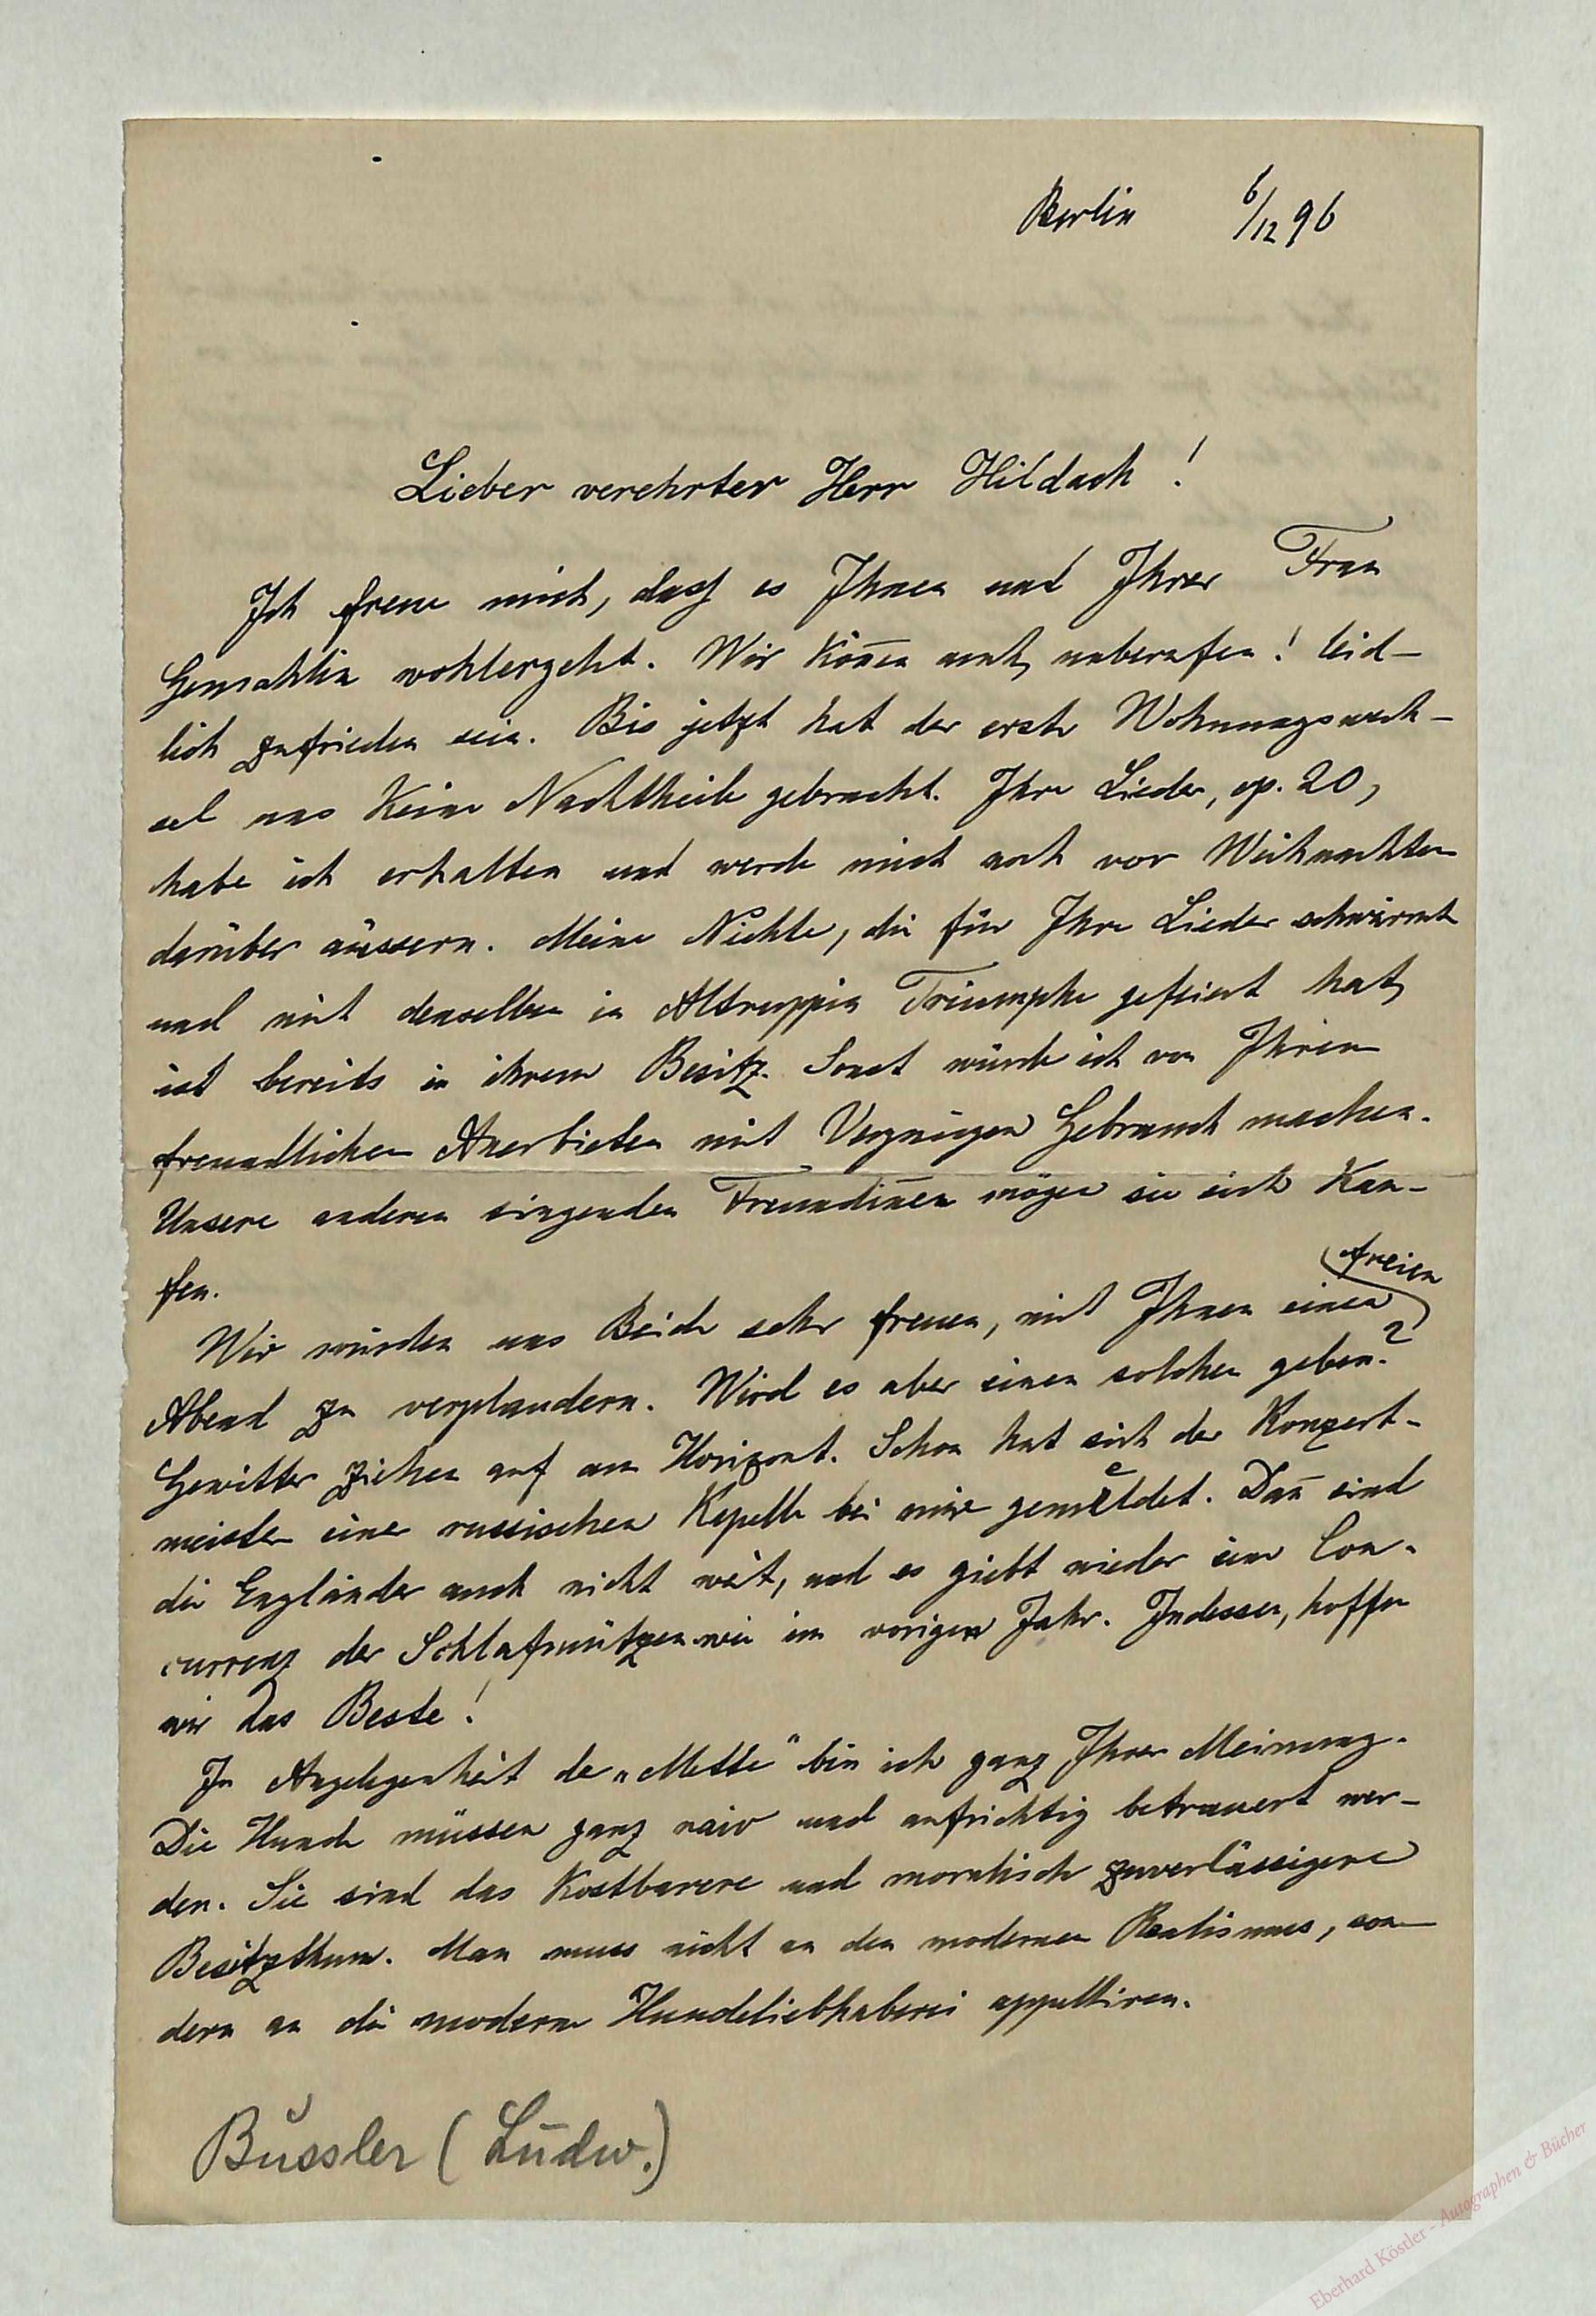 Berlin 6/12 96
Lieber verehrter Herr Hildach!
Ich freue mich, dass es Ihnen und Ihrer Frau
Gemahlin wohlergeht. Wir kön̄en auch, unberufen! leid-
lich zufrieden sein. Bis jetzt hat der erste Wohnungswech-
sel uns keine Nachtheile gebracht. Ihre Lieder, op. 20,
habe ich erhalten und werde mich noch vor Weihnachten
darüber äussern. Meine Nichte, die für Ihre Lieder schwärmt
und mit denselben in Altruppin Triumphe gefeiert hat,
ist bereits in ihrem Besitz. Sonst würde ich von Ihrem
freundlichen Anerbieten mit Vergnügen Gebrauch machen.
Unsere anderen singenden Freundin̄en mögen sie sich kau-
fen.
Wir würden uns Beide sehr freuen, mit Ihnen einen freien
Abend zu verplaudern. Wird es aber einen solchen geben?
Gewitter ziehen auf am Horizont. Schon hat sich der Konzert-
meister einer russischen Kapelle bei mir gemeldet. Dan̄ sind
die Engländer auch nicht weit, und es giebt wieder eine Con-
currenz der Schlafmützen wie im vorigen Jahr. Indessen, hoffen
wir das Beste!
In Angelegenheit der „Mette“ bin ich ganz Ihrer Meinung.
Die Hunde müssen ganz naiv und aufrichtig betrauert wer-
den. Sie sind das kostbarere und moralisch zuverlässigere
Besitzthum. Man muss nicht an den modernen Realismus, son-
dern an die moderne Hundeliebhaberei appelliren.
Bussler (Ludw.)
Eberhard Köstler - Autographen & Bücher